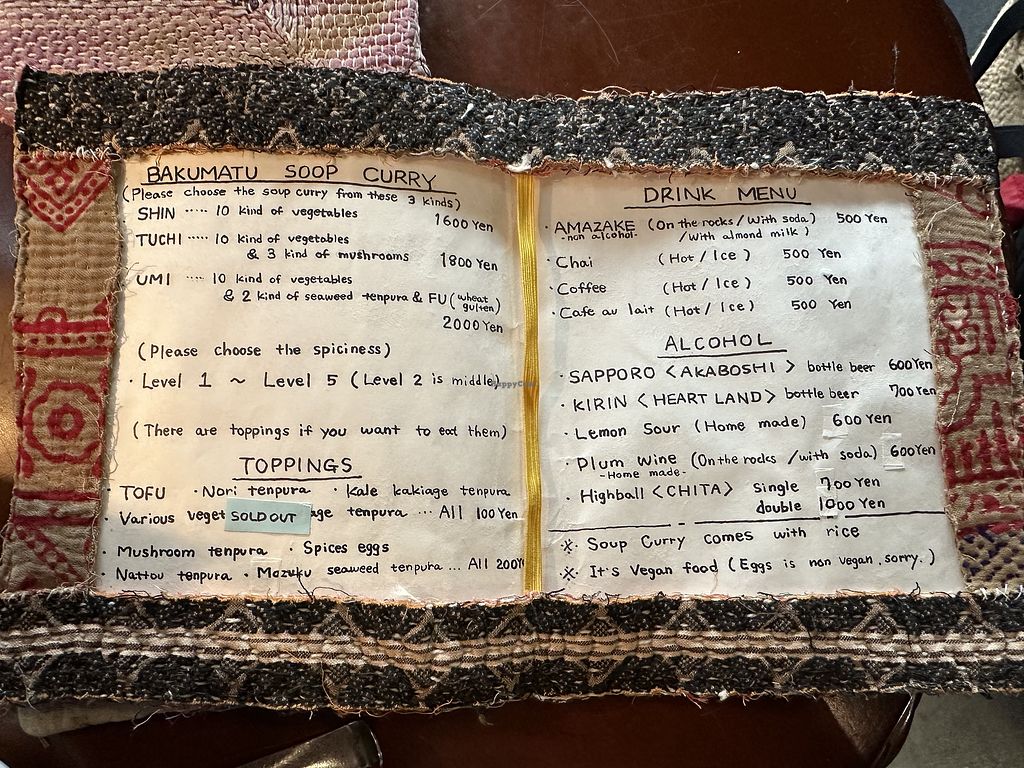 BAKUMATU SOOP CURRY
(Please choose the soup curry from these 3 kinds)
SHIN ····· 10 kind of vegetables 1600 Yen
TUCHI ····· 10 kind of vegetables
& 3 kind of mushrooms 1800 Yen
UMI ····· 10 kind of vegetables
& 2 kind of seaweed tenpura & FU (wheat gulten)
2000 Yen
(Please choose the spiciness)
· Level 1 ~ Level 5 (Level 2 is middle)
(There are toppings if you want to eat them)
TOPPINGS
· TOFU · Nori tenpura · Kale kakiage tenpura
· Various veget SOLD OUT age tenpura ··· All 100 Yen
· Mushroom tenpura · Spices eggs
· Nattou tenpura · Mozuku seaweed tenpura ... All 200Y
DRINK MENU
· AMAZAKE (On the rocks / With soda) 500 Yen
-non alcohol- /with almond milk)
· Chai (Hot / Ice) 500 Yen
· Coffee (Hot / Ice) 500 Yen
· Cafe au lait (Hot / Ice) 500 Yen
ALCOHOL
· SAPPORO <AKABOSHI> bottle beer 600 Yen
· KIRIN <HEART LAND> bottle beer 700 Yen
· Lemon Sour (Home made) 600 Yen
· Plum Wine (On the rocks / with soda) 600 Yen
-Home made-
· Highball <CHITA> Single 700 Yen
double 1000 Yen
※ Soup Curry comes with rice
※ It's Vegan food (Eggs is non vegan, sorry.)